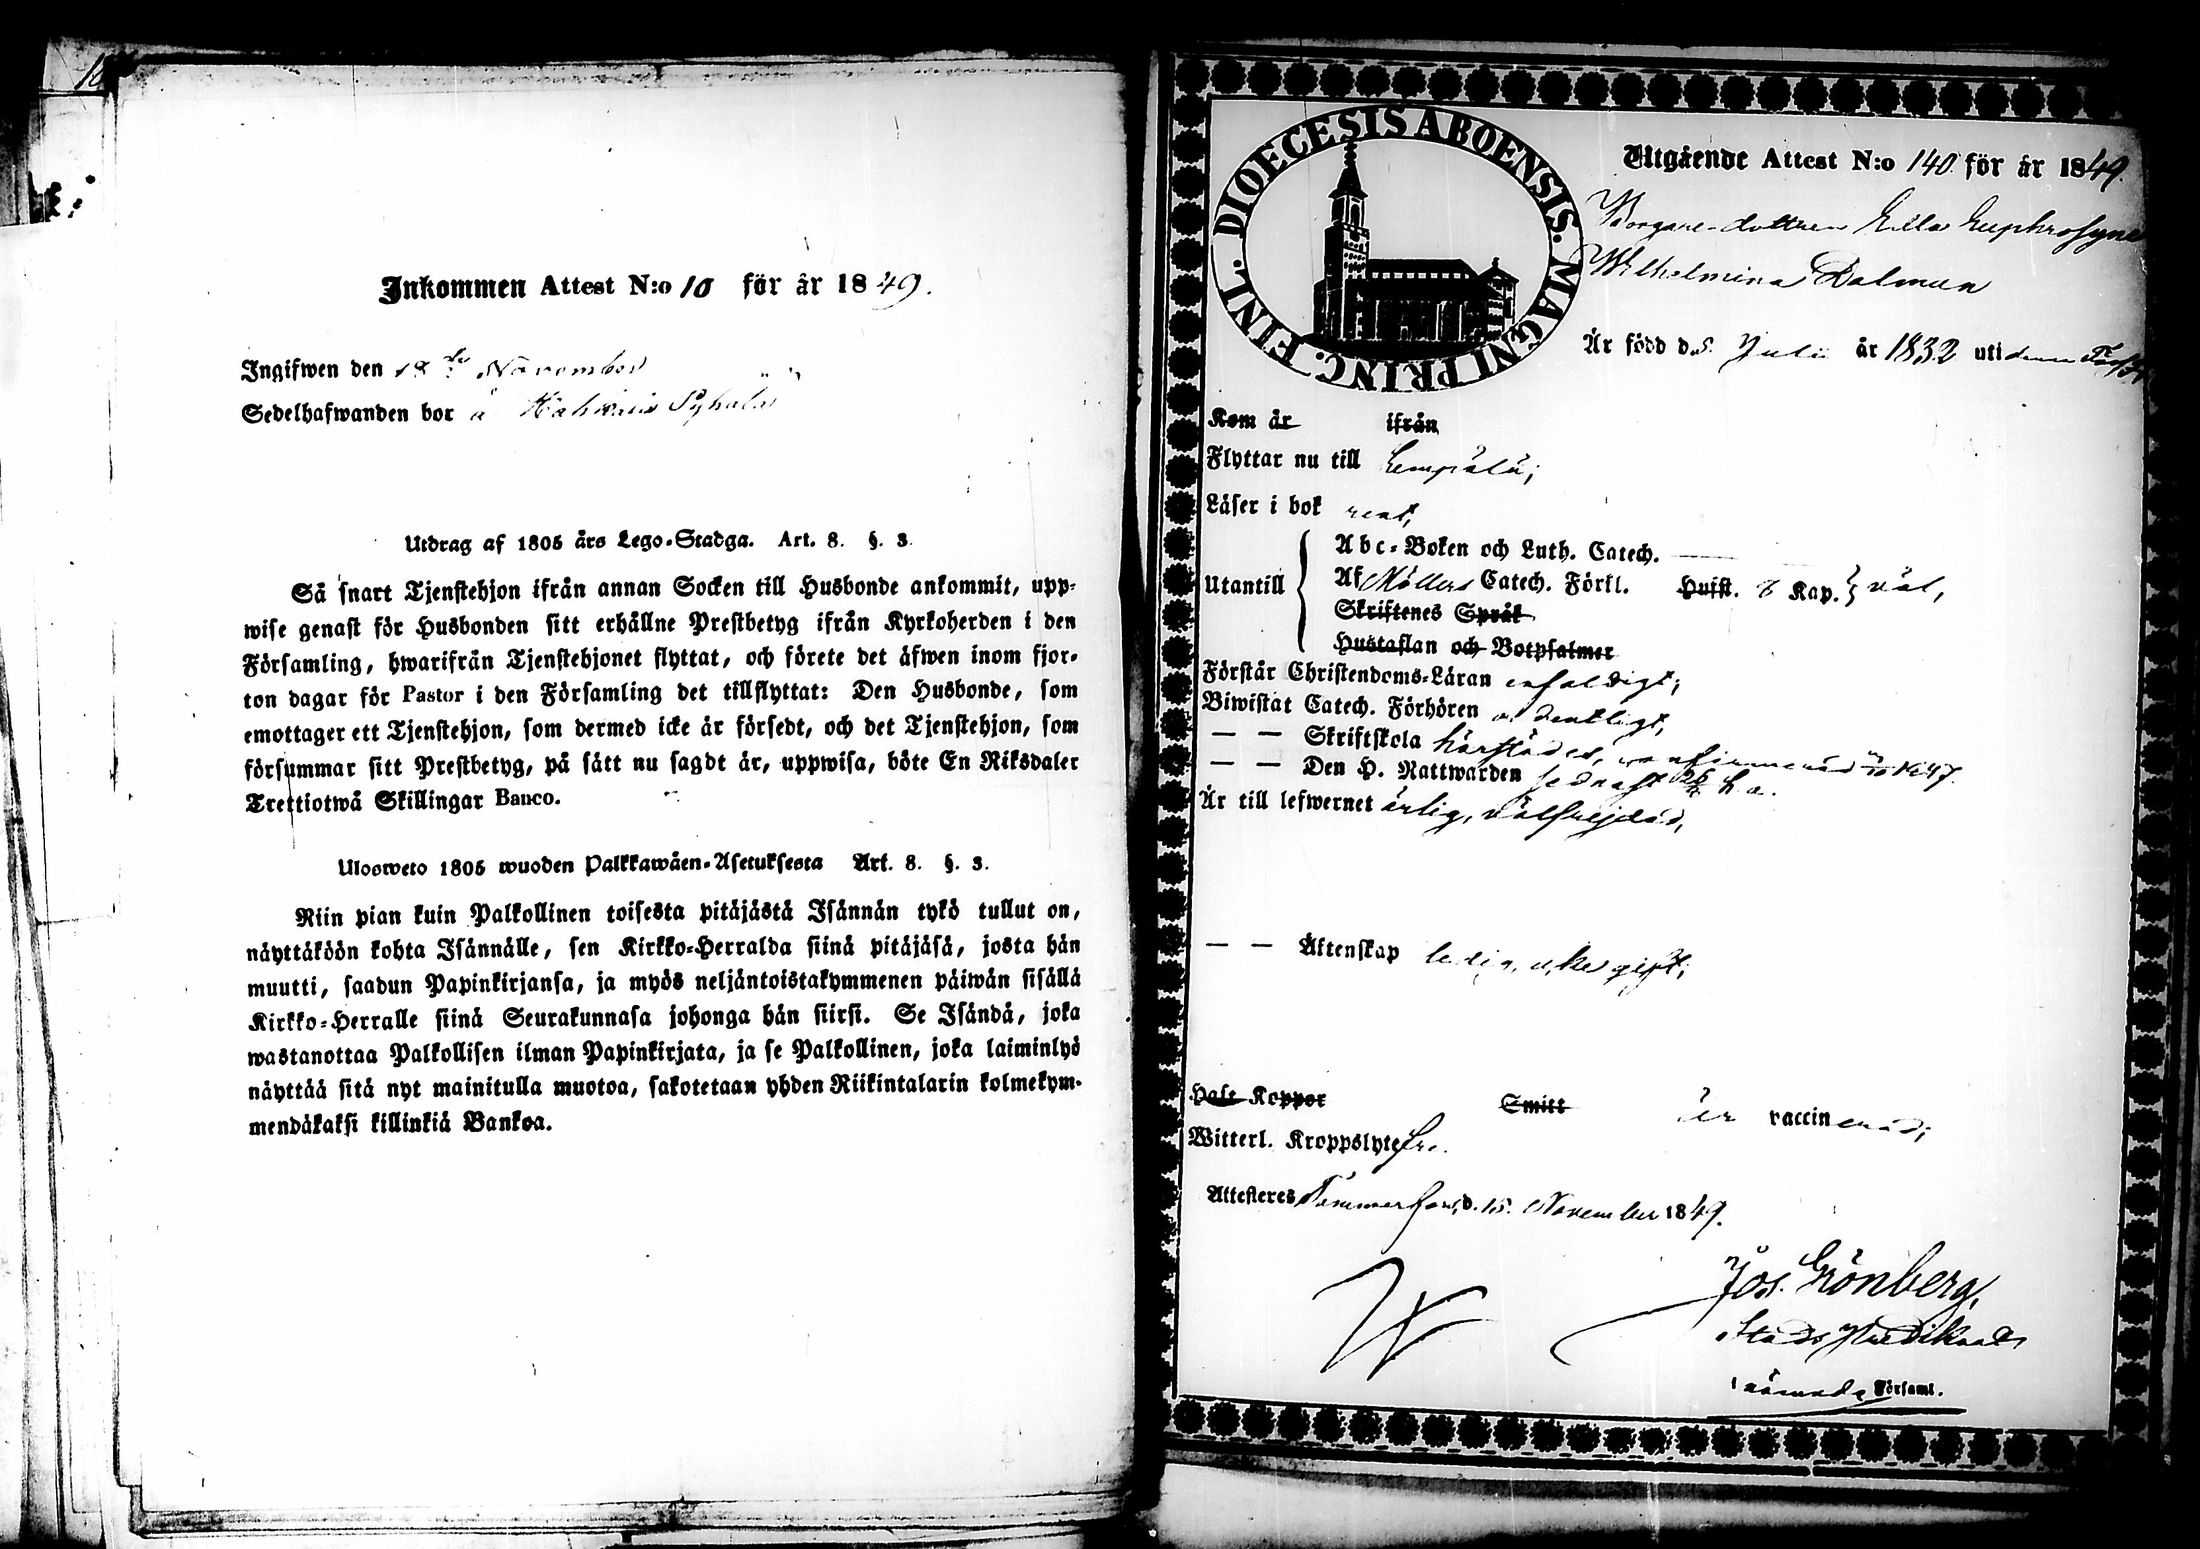 Inkommen Attest N:o 10 för år 1849.
Ingifwen den 18de November
Sedelhafwanden bor å Pyhälä
Utdrag af 1805 års Lego-Stadga. Art. 8. §. 3
Så snart Tjenstehjon ifrån annan Socken till Husbonde ankommit, upp-
wise genast för Husbonden sitt erhållne Prestbetyg ifrån Kyrkoherden i den
Församling, hwarifrån Tjenstehjonet flyttat, och förete det äfwen inom fjor-
ton dagar för Pastor i den Församling det tillflyttat: Den Husbonde, som
emottager ett Tjenstehjon, som dermed icke är försedt, och det Tjenstehjon, som
försummar sitt Prestbetyg, på sätt nu sagdt är, uppwisa, böte En Riksdaler
Trettiotwå Skillingar Banco.
Ulosweto 1805 wuoden Palkkawäen-Asetuksesta Art. 8. §. 3.
Niin pian kuin Palkollinen toisesta pitäjästä Isännän tykö tullut on,
näyttäköön kohta Isännälle, sen Kirkko-Herralda siinä pitäjäsä, josta hän
muutti, saadun Papinkirjansa, ja myös neljäntoistakymmenen päiwän sisällä
Kirkko-Herralle siinä Seurakunnasa johonga hän siirsi. Se Isändä, joka
wastanottaa Palkollisen ilman Papinkirjata, ja se Palkollinen, joka laiminlyö
näyttää sitä nyt mainitulla muotoa, sakotetaan yhden Riikintalarin kolmekym-
mendäkaksi killinkiä Bankoa.
DIOECESIS ABOENSIS. MAGNI PRINC. FINL.
Utgående Attest N:o 140 för år 1849.
Borgare-dottren Ulla Euphrosyne
Wilhelmina Dalman
Är född d. 5. Julii år 1832 uti denna
Kom år ifrån
Flyttar nu till Lempälä;
Läser i bok rent,
Utantill
Abc-Boken och Luth. Catech.
Af Möllers Catech. Förkl. Husst. 8 Kap. väl,
Skriftenes Språk
Hustaflan och Botpsalmer
Förstår Christendoms-Läran enfaldigt;
Biwistat Catech. Förhören ordentligt,
— — Skriftskola härstädes, confirmerad 1847.
— — Den H. Nattwarden sednast h. a.
Är till lefwernet ärlig, välfrejdad,
— — Äktenskap ledig, ogift;
Haft Koppor Smitt är vaccinerad;
Witterl. Kroppslyte fri.
Attesteres Tammerfors, d. 15. November 1849.
Jos. Grönberg,
Stads Predikant
i nämnde Församl.